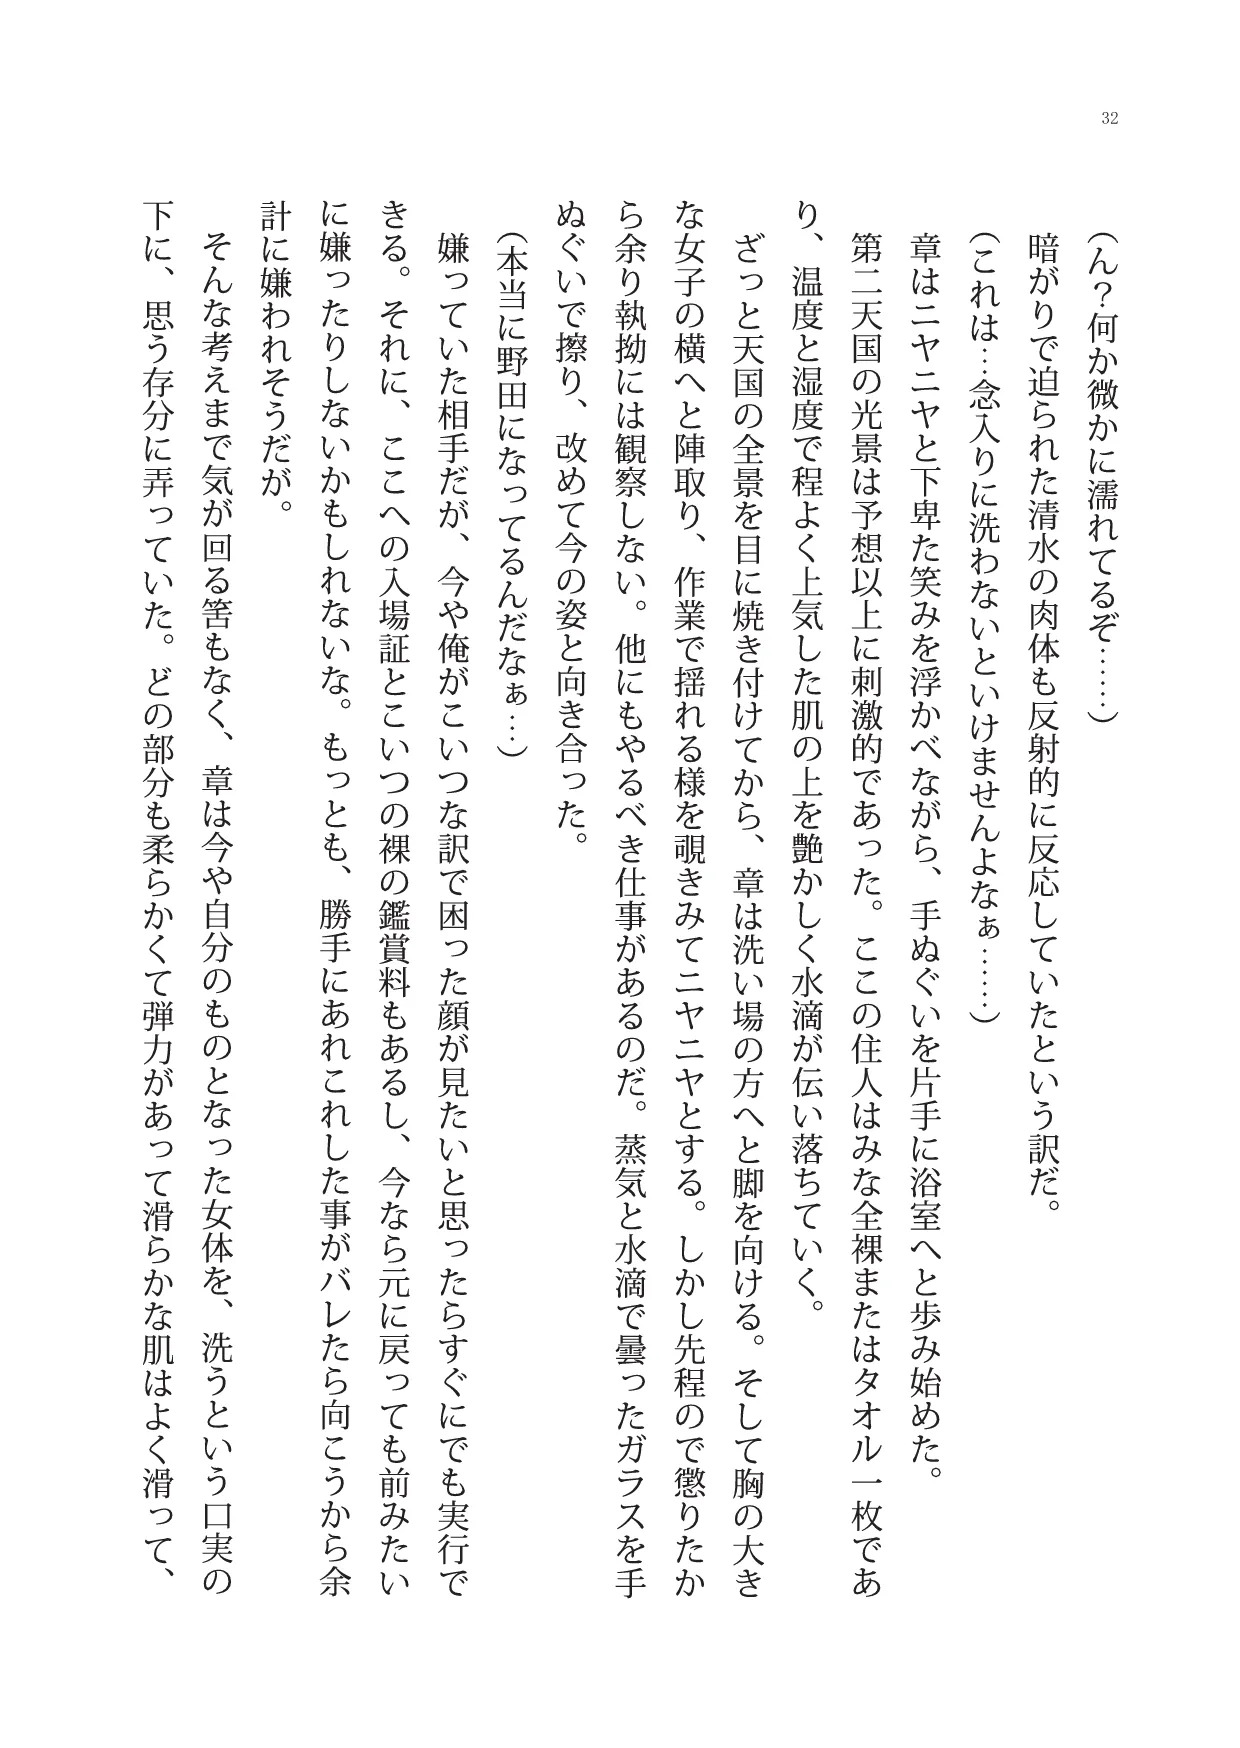 32
（ん？何か微かに濡れてるぞ……）
暗がりで迫られた清水の肉体も反射的に反応していたという訳だ。
（これは…念入りに洗わないといけませんよなぁ……）
章はニヤニヤと下卑た笑みを浮かべながら、手ぬぐいを片手に浴室へと歩み始めた。
第二天国の光景は予想以上に刺激的であった。ここの住人はみな全裸またはタオル一枚であ
り、温度と湿度で程よく上気した肌の上を艶かしく水滴が伝い落ちていく。
ざっと天国の全景を目に焼き付けてから、章は洗い場の方へと脚を向ける。そして胸の大き
な女子の横へと陣取り、作業で揺れる様を覗きみてニヤニヤとする。しかし先程ので懲りたか
ら余り執拗には観察しない。他にもやるべき仕事があるのだ。蒸気と水滴で曇ったガラスを手
ぬぐいで擦り、改めて今の姿と向き合った。
（本当に野田になってるんだなぁ…）
嫌っていた相手だが、今や俺がこいつな訳で困った顔が見たいと思ったらすぐにでも実行で
きる。それに、ここへの入場証とこいつの裸の鑑賞料もあるし、今なら元に戻っても前みたい
に嫌ったりしないかもしれないな。もっとも、勝手にあれこれした事がバレたら向こうから余
計に嫌われそうだが。
そんな考えまで気が回る筈もなく、章は今や自分のものとなった女体を、洗うという口実の
下に、思う存分に弄っていた。どの部分も柔らかくて弾力があって滑らかな肌はよく滑って、